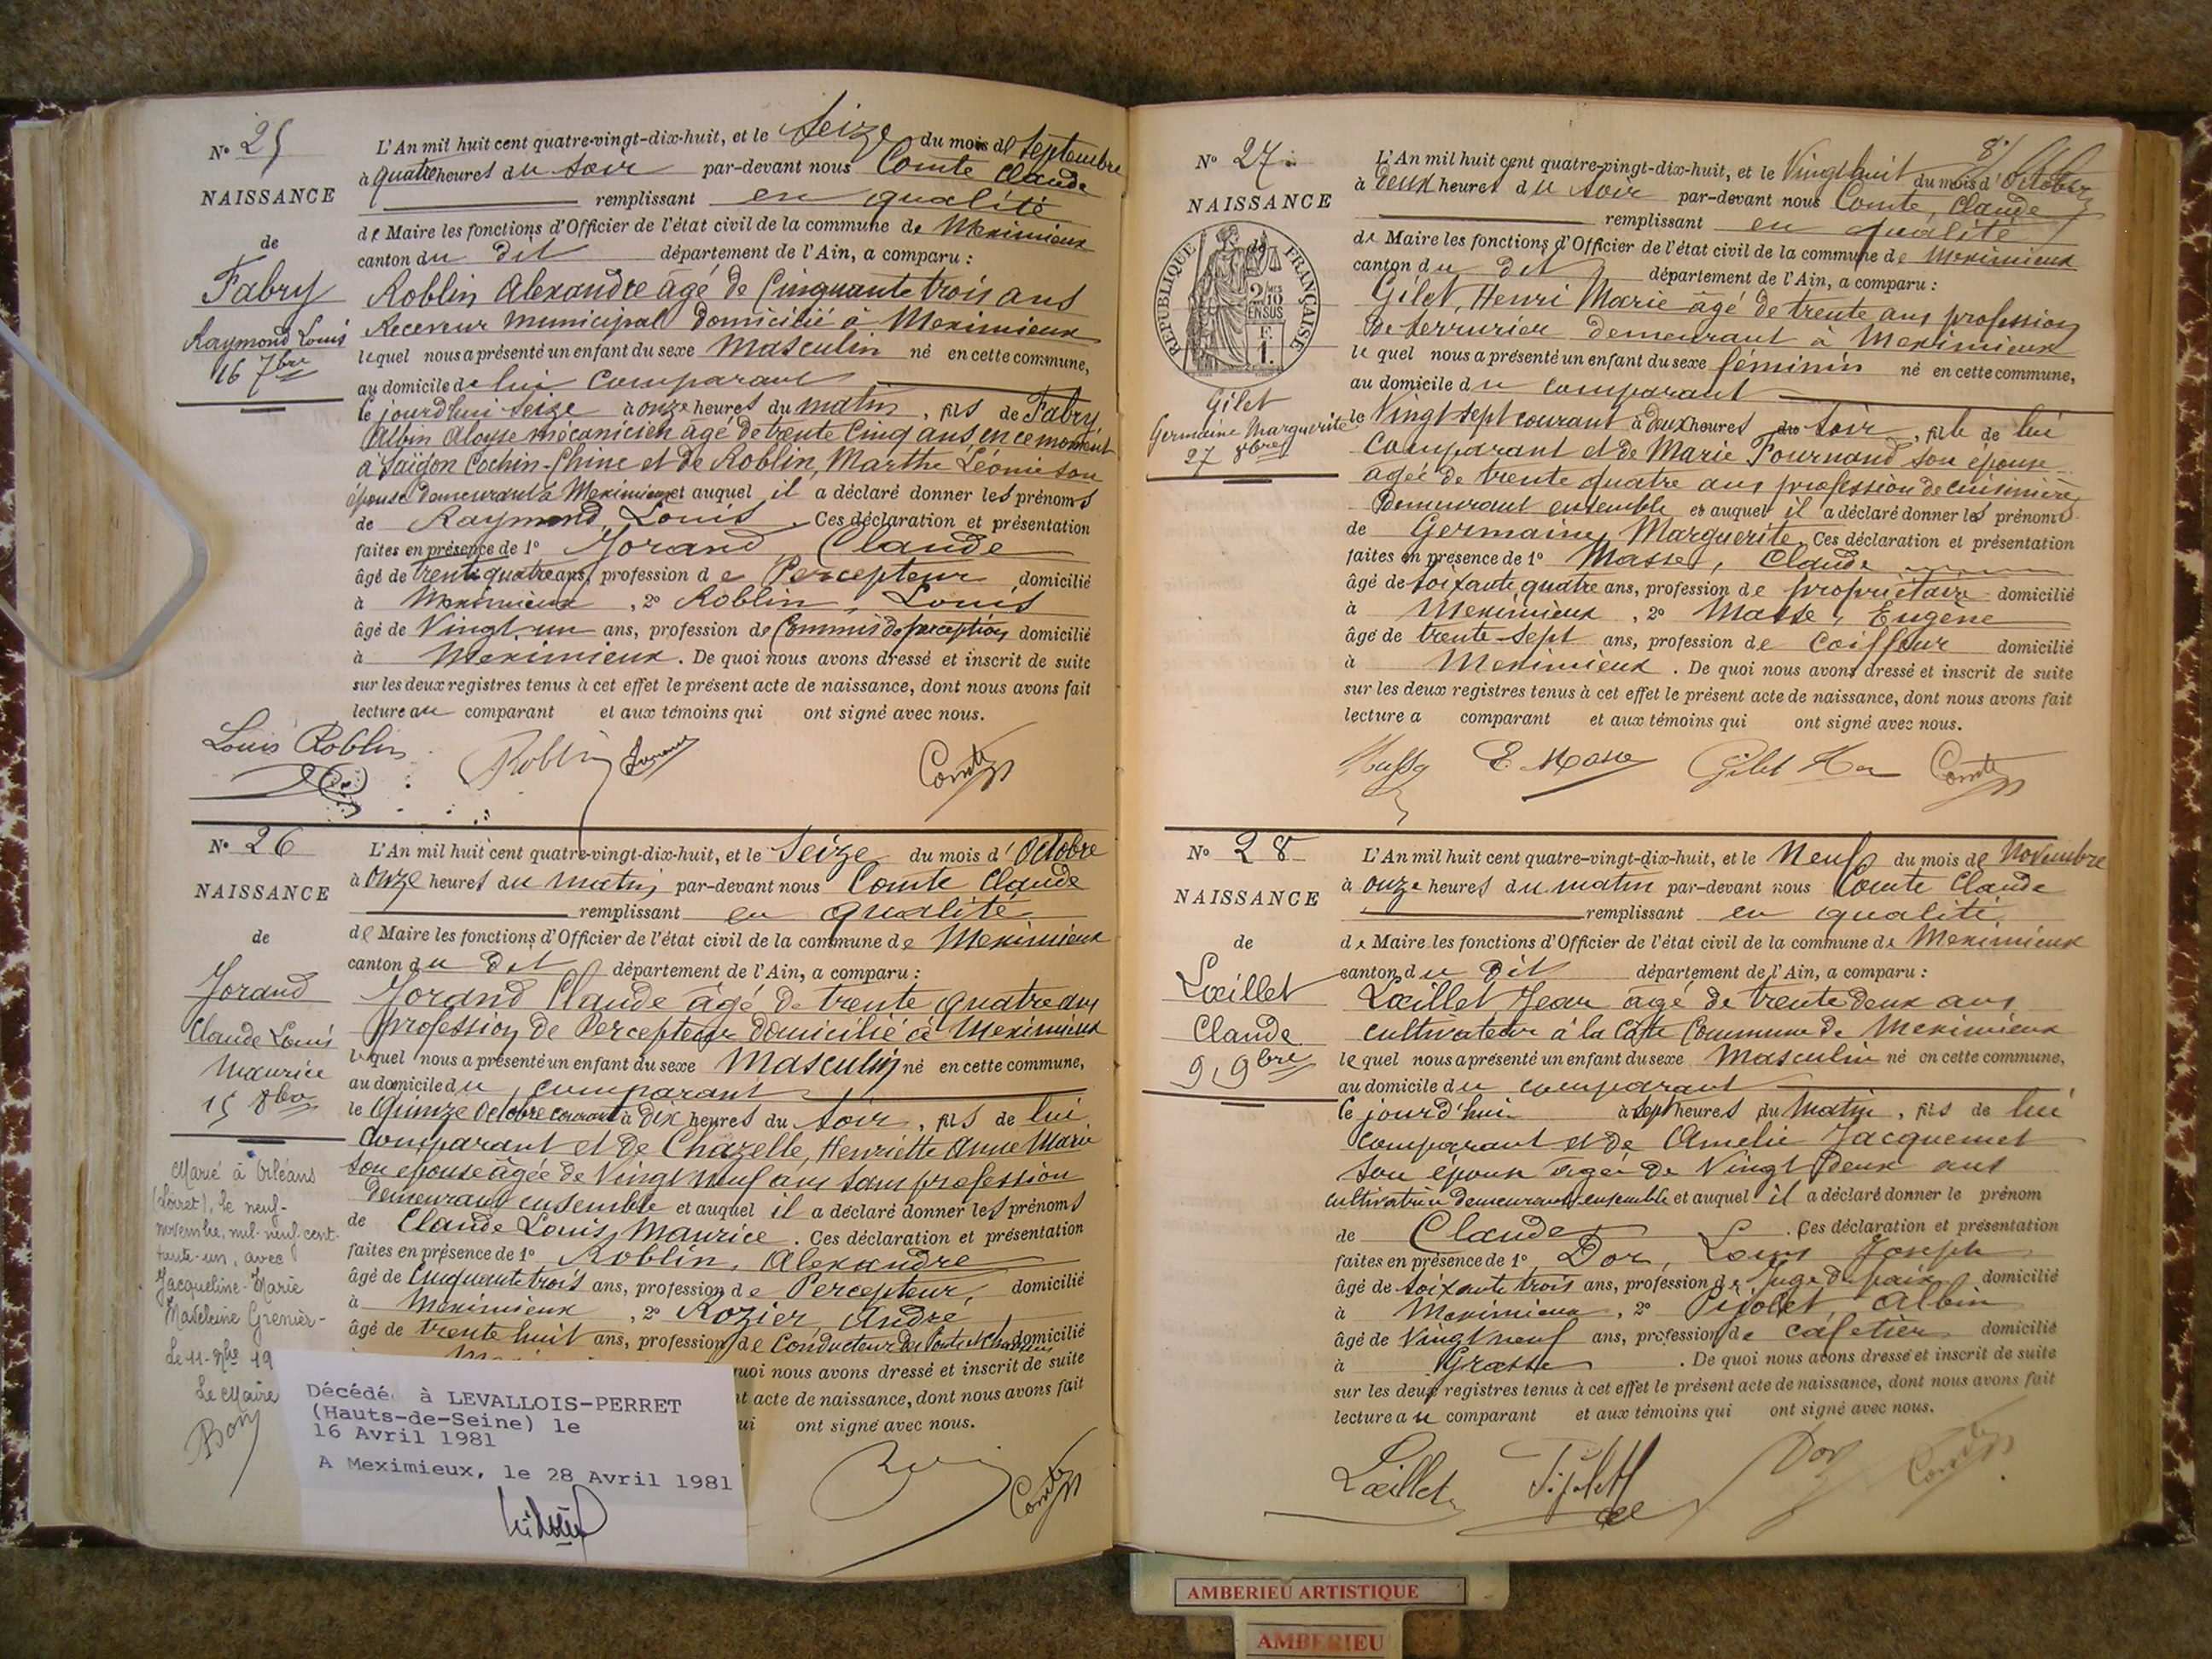 N° 25
NAISSANCE
de
Fabry
Raymond Louis
16 7bre
L'An mil huit cent quatre-vingt-dix-huit, et le Seize du mois de Septembre
à quatre heures du soir par-devant nous Comte Claude
remplissant en qualité
de Maire les fonctions d'Officier de l'état civil de la commune de Meximieux
canton du dit département de l'Ain, a comparu :
Roblin Alexandre âgé de Cinquante trois ans
Receveur Municipal domicilié à Meximieux
lequel nous a présenté un enfant du sexe Masculin né en cette commune,
au domicile de lui comparant
le jourd'hui seize à onze heures du matin, fils de Fabry
Albin Aloyse mécanicien âgé de trente cinq ans, en ce moment
à Saïgon Cochin-Chine et de Roblin, Marthe Léonie son
épouse demeurant à Meximieux et auquel il a déclaré donner les prénoms
de Raymond, Louis. Ces déclaration et présentation
faites en présence de 1° Jorand, Claude
âgé de trente quatre ans, profession de Percepteur domicilié
à Meximieux, 2° Roblin, Louis
âgé de Vingt un ans, profession de Commis de perception domicilié
à Meximieux. De quoi nous avons dressé et inscrit de suite
sur les deux registres tenus à cet effet le présent acte de naissance, dont nous avons fait
lecture au comparant et aux témoins qui ont signé avec nous.
Louis Roblin Roblin Jorand Comte
N° 26
NAISSANCE
de
Jorand
Claude Louis
Maurice
15 8bre
Marié à Orléans
(Loiret), le neuf-
novembre, mil-neuf-cent-
trente-un, avec
Jacqueline-Marie
Madeleine Grenier-
Le Maire
Bory
L'An mil huit cent quatre-vingt-dix-huit, et le Seize du mois d'Octobre
à Onze heures du matin, par-devant nous Comte Claude
remplissant en qualité
de Maire les fonctions d'Officier de l'état civil de la commune de Meximieux
canton du dit département de l'Ain, a comparu :
Jorand Claude âgé de trente quatre ans
profession de Percepteur domicilié à Meximieux
lequel nous a présenté un enfant du sexe Masculin né en cette commune,
au domicile du comparant
le Quinze Octobre courant à dix heures du soir, fils de lui
comparant et de Chazelle, Henriette Anne Marie
son épouse âgée de Vingt neuf ans sans profession
demeurant ensemble et auquel il a déclaré donner les prénoms
de Claude Louis Maurice. Ces déclaration et présentation
faites en présence de 1° Roblin, Alexandre
âgé de Cinquante trois ans, profession de Percepteur, domicilié
à Meximieux, 2° Rozier, André
âgé de trente huit ans, profession de Conducteur des Ponts et Chaussées domicilié
quoi nous avons dressé et inscrit de suite
nt acte de naissance, dont nous avons fait
ui ont signé avec nous.
Comte
Décédé à LEVALLOIS-PERRET
(Hauts-de-Seine) le
16 Avril 1981
A Meximieux, le 28 Avril 1981
N° 27
NAISSANCE
de
RÉPUBLIQUE FRANÇAISE
2/10
EN SUS
F.
1.
Gilet
Germaine Marguerite
27 8bre
L'An mil huit cent quatre-vingt-dix-huit, et le Vingt huit du mois d'Octobre
à deux heures du soir par-devant nous Comte, Claude
remplissant en qualité
de Maire les fonctions d'Officier de l'état civil de la commune de Meximieux
canton du dit département de l'Ain, a comparu :
Gilet, Henri Marie âgé de trente ans profession
de serrurier demeurant à Meximieux
lequel nous a présenté un enfant du sexe féminin né en cette commune,
au domicile du comparant
le Vingt sept courant à deux heures du soir, fille de lui
comparant et de Marie Fournand son épouse
âgée de trente quatre ans profession de cuisinière
demeurant ensemble et auquel il a déclaré donner les prénoms
de Germaine, Marguerite. Ces déclaration et présentation
faites en présence de 1° Masse, Claude
âgé de soixante quatre ans, profession de propriétaire domicilié
à Meximieux, 2° Masse, Eugène
âgé de trente-sept ans, profession de coiffeur domicilié
à Meximieux. De quoi nous avons dressé et inscrit de suite
sur les deux registres tenus à cet effet le présent acte de naissance, dont nous avons fait
lecture a comparant et aux témoins qui ont signé avec nous.
Masse E. Masse Gilet Comte
N° 28
NAISSANCE
de
Lœillet
Claude
9 9bre
L'An mil huit cent quatre-vingt-dix-huit, et le Neuf du mois de Novembre
à onze heures du matin par-devant nous Comte Claude
remplissant en qualité
de Maire les fonctions d'Officier de l'état civil de la commune de Meximieux
canton du dit département de l'Ain, a comparu :
Lœillet Jean âgé de trente deux ans
cultivateur à la Côte Commune de Meximieux
lequel nous a présenté un enfant du sexe Masculin né en cette commune,
au domicile du comparant
le jourd'hui à sept heures du matin, fils de lui
comparant et de Amélie Jacquemet
son épouse âgée de Vingt deux ans
cultivatrice demeurant ensemble et auquel il a déclaré donner le prénom
de Claude. Ces déclaration et présentation
faites en présence de 1° Dor, Louis Joseph
âgé de soixante trois ans, profession de Juge de paix domicilié
à Meximieux, 2° Pijolet, Albin
âgé de Vingt neuf ans, profession de cafetier domicilié
à Grasse. De quoi nous avons dressé et inscrit de suite
sur les deux registres tenus à cet effet le présent acte de naissance, dont nous avons fait
lecture au comparant et aux témoins qui ont signé avec nous.
Lœillet Pijolet Dor Comte
AMBERIEU ARTISTIQUE
AMBERIEU